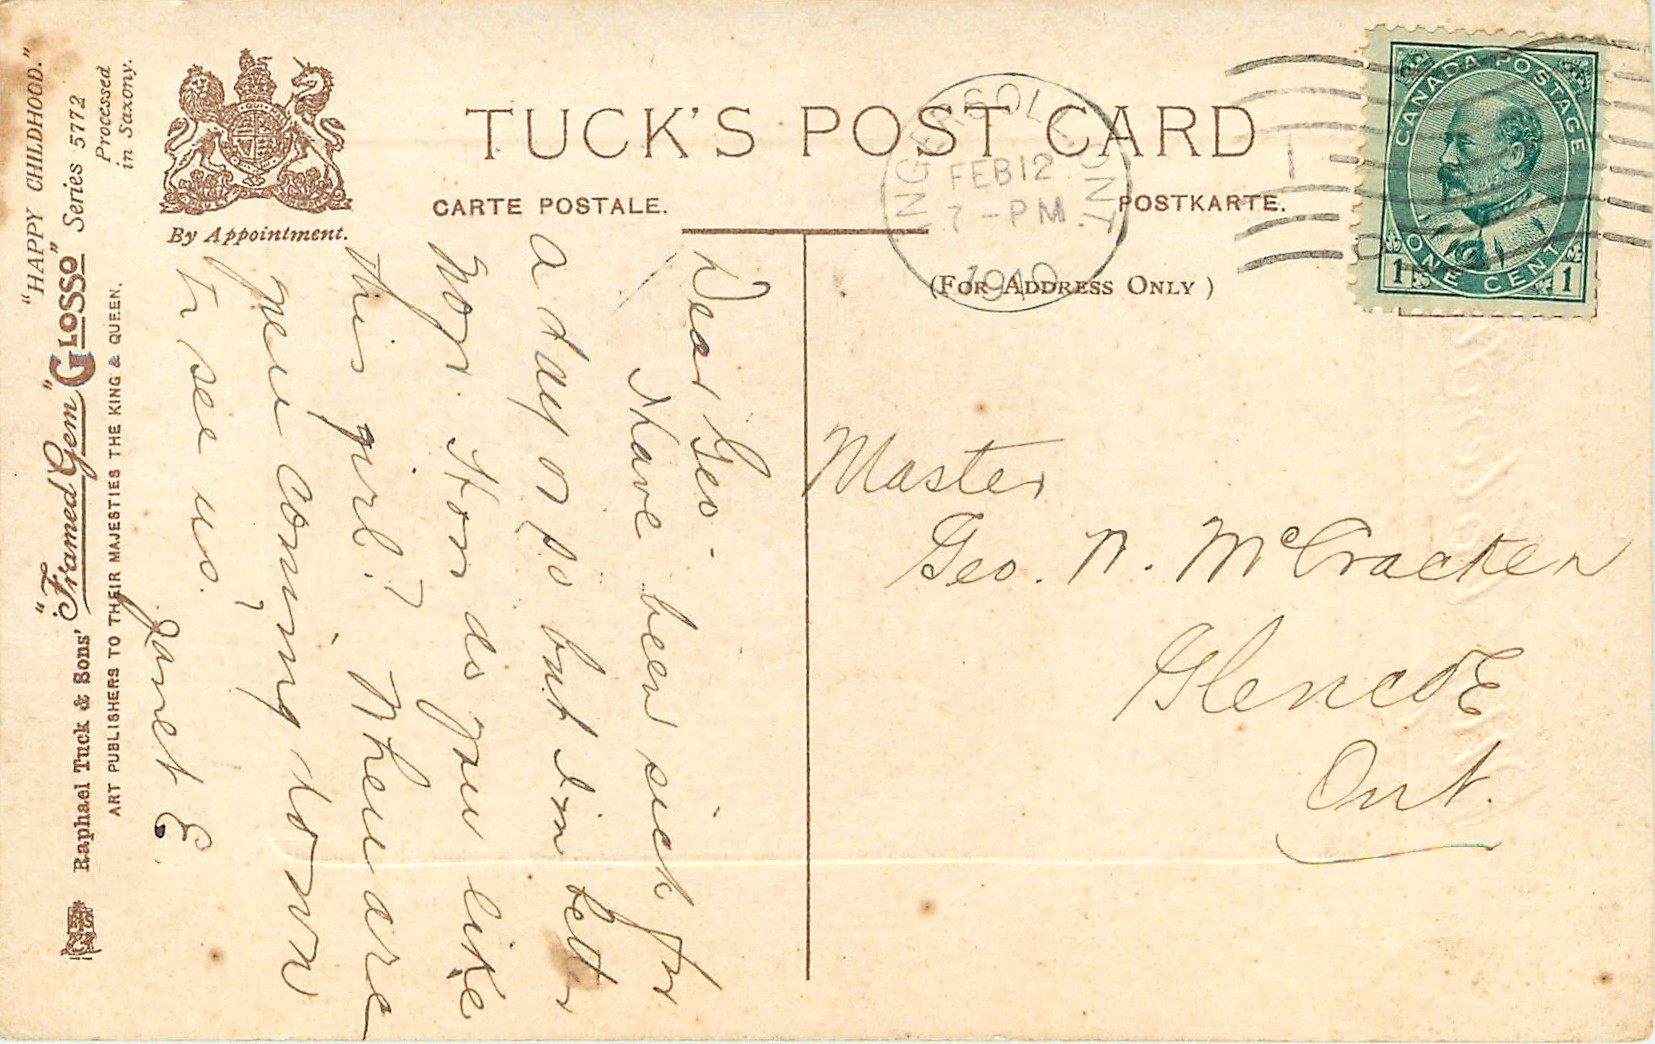 "HAPPY CHILDHOOD."
Raphael Tuck & Sons' "Framed Gem" "GLOSSO" Series 5772
ART PUBLISHERS TO THEIR MAJESTIES THE KING & QUEEN.
Processed
in Saxony.
By Appointment.
TUCK'S POST CARD
CARTE POSTALE.
POSTKARTE.
(FOR ADDRESS ONLY)
INGERSOLL, ONT.
FEB 12
7-PM
1910
CANADA POSTAGE
ONE CENT
1 1
Dear Geo.
I have been sick for
a day or so but I'm better
now. How do you like
this girl? When are
you coming down
to see us.
Janet E.
Master
Geo. N. McCracken
Glencoe
Ont.